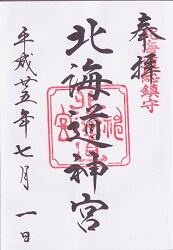 奉拝
北海道総鎮守
北海道神宮
平成廿五年七月一日